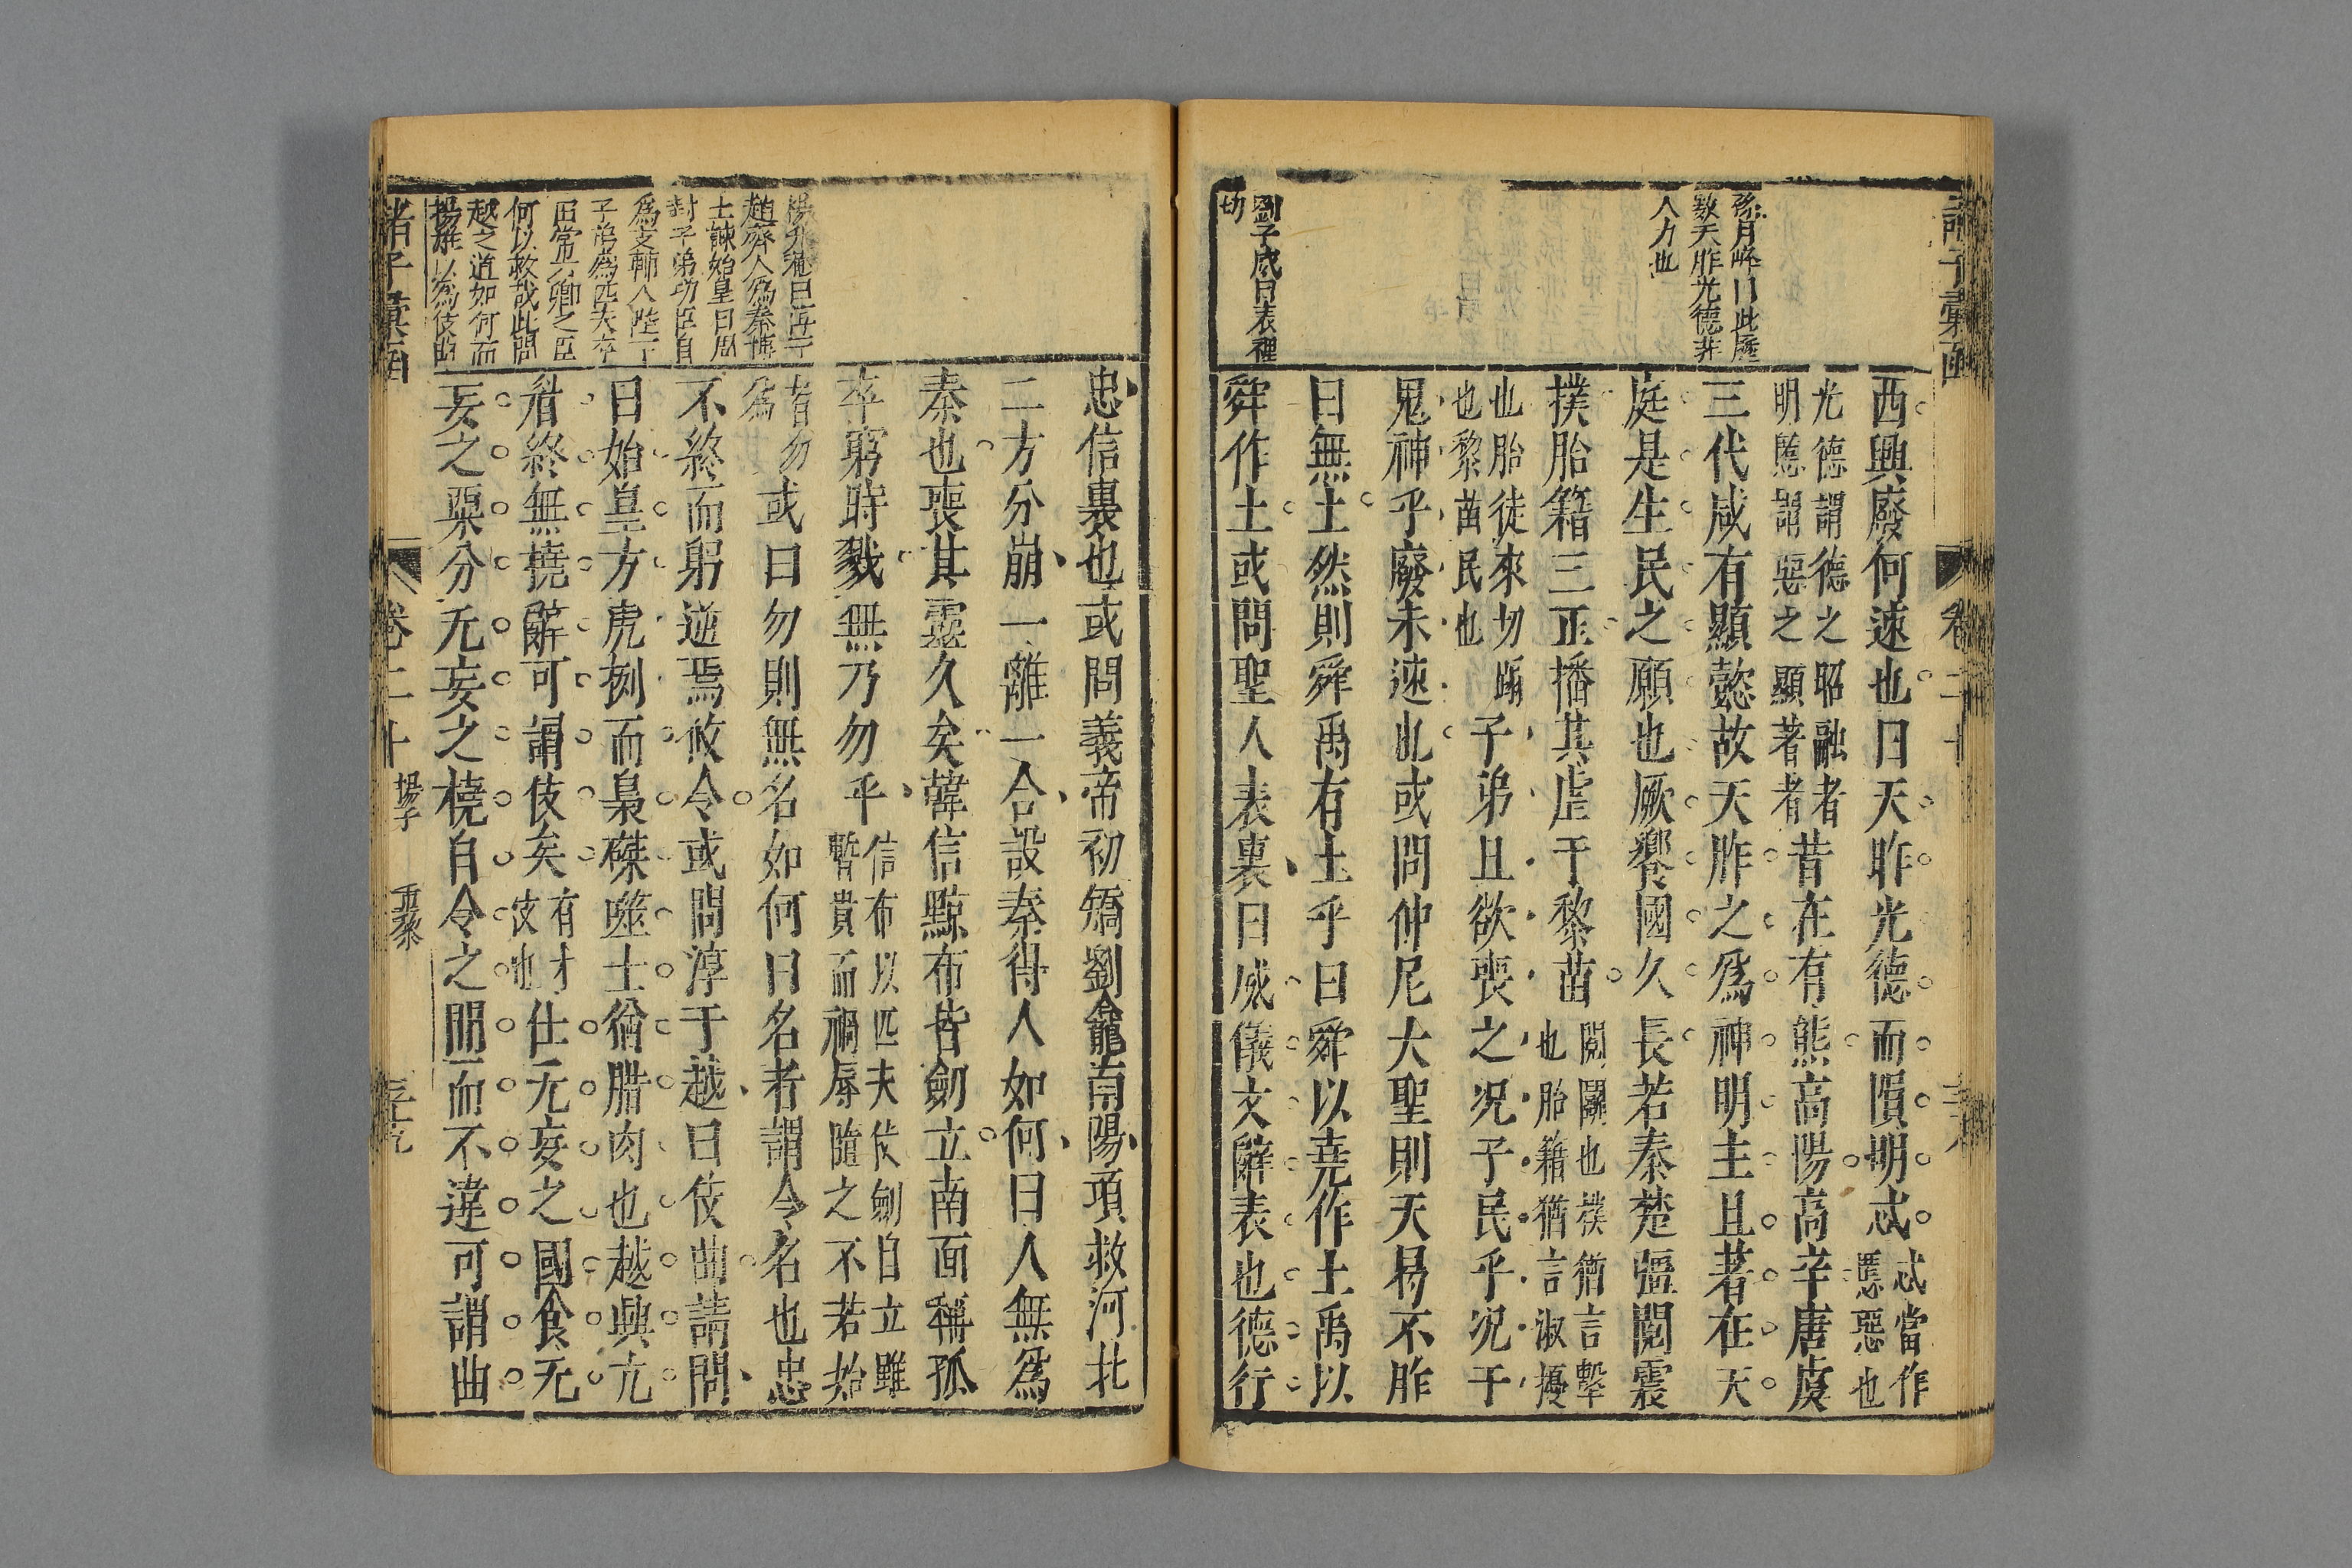 諸子彙函
卷二十
孫月峰曰此歷
數天胙光德非
人力也
劉子威曰表裡
切
西興廢何速也曰天胙光德而隕明忒忒當作慝惡也
光德謂德之昭融者明慝謂惡之顯著者昔在有熊高陽高辛唐虞
三代咸有顯懿故天胙之爲神明主且著在天
庭是生民之願也厥饗國久長若秦楚彊鬩震
撲胎籍三正播其虐于黎苗鬩鬭也撲猶言擊也胎籍猶言溆擾
也胎徒來切也黎苗民也子弟且欲喪之况子民乎况于
鬼神乎廢未速也或問仲尼大聖則天曷不胙
曰無土然則舜禹有土乎曰舜以堯作土禹以
舜作土或問聖人表裏曰威儀文辭表也德行
忠信裏也或問義帝初矯劉龕南陽項救河北
二方分崩一離一合設秦得人如何曰人無爲
秦也喪其靈久矣韓信黥布皆劒立南面稱孤
卒窮時戮無乃勿乎信布以匹夫仗劒自立雖暫貴而禍辱隨之不若始
爲皆勿或曰勿則無名如何曰名者謂令名也忠
不終而躬逆焉攸令或問淳于越曰伎曲請問
曰始皇方虎挒而梟磔噬士猶腊肉也越與亢
眉終無撓辭可謂伎矣有才伎也仕无妄之國食无
妄之粟分无妄之橈自令之間而不違可謂曲
楊升菴曰淳于
越齊人爲秦博
士諫始皇曰周
封子弟功臣自
爲支輔今陛下
子弟爲匹夫卒
田常六卿之臣
何以救哉此問
越之道如何而
揚雄以爲伎曲
諸子彙函
卷二十
揚子
重黎
三十九